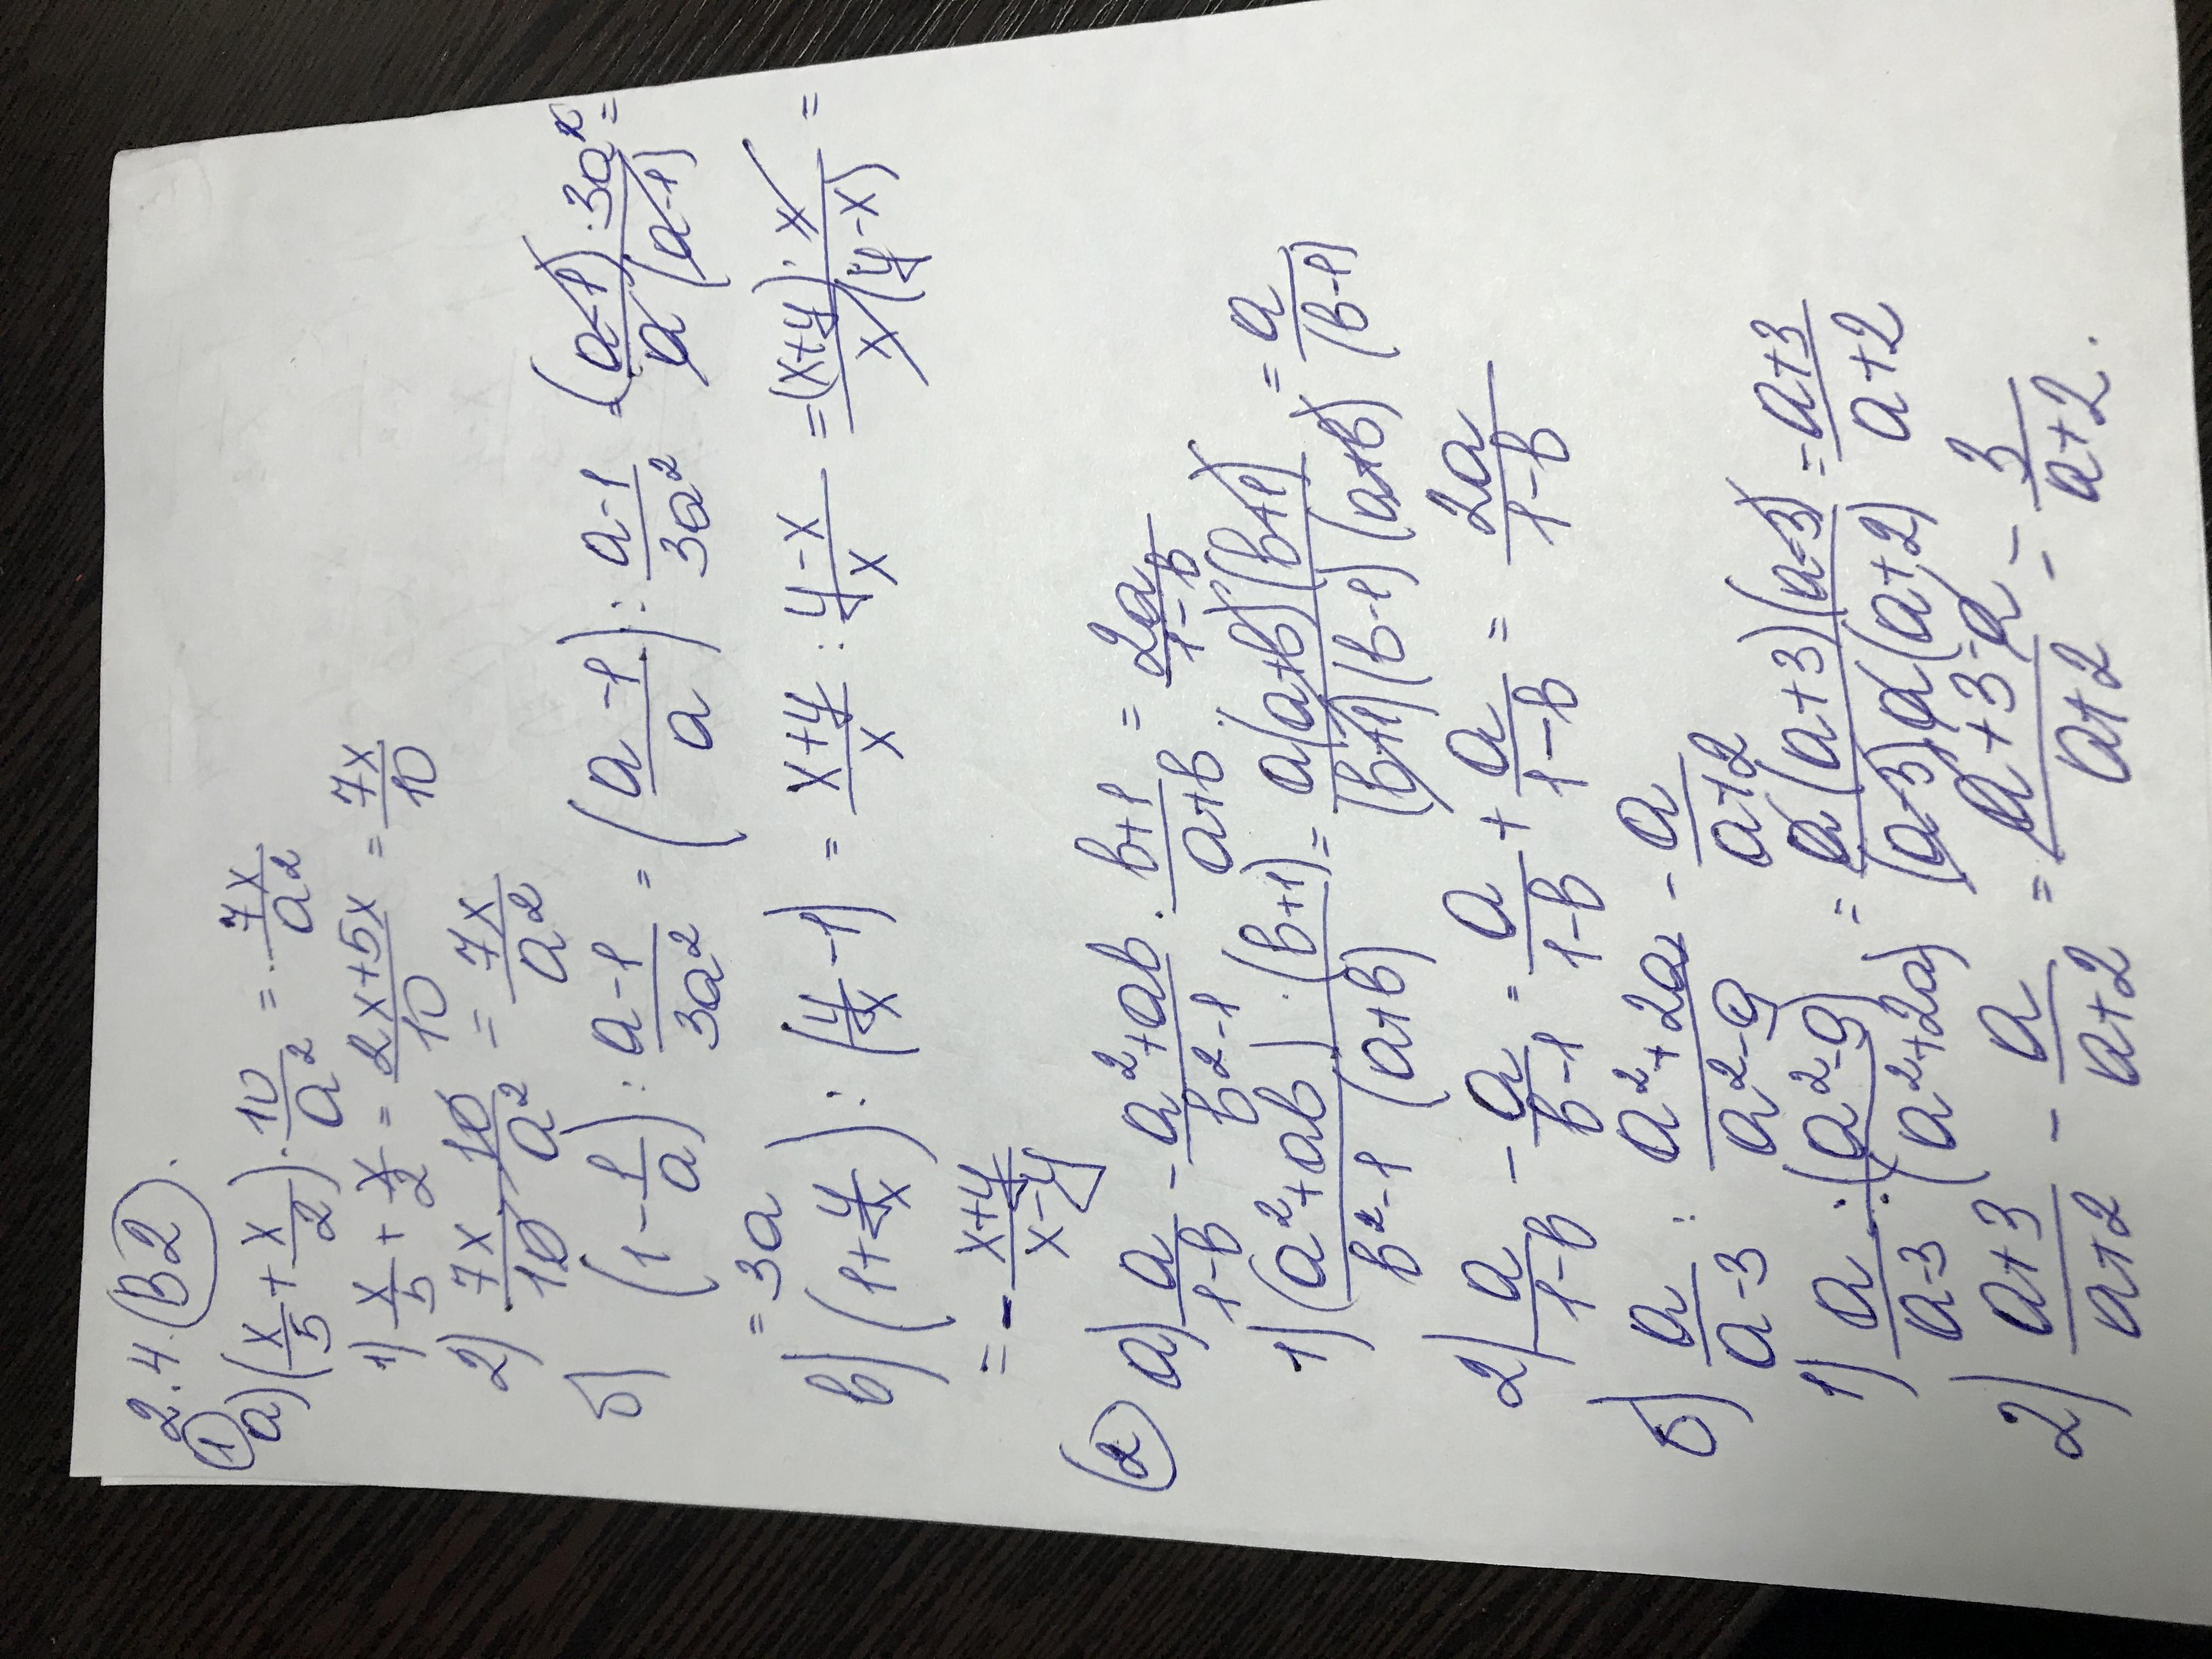 2.4. (В2).
① а) (x/5 + x/2) · 10/a² = 7x/a²
1) x/5 + x/2 = 2x+5x/10 = 7x/10
2) 7x/10 · 10/a² = 7x/a²
б) (1 - 1/a) : a-1/3a² = (a-1/a) : a-1/3a² = (a-1)·3a²/a(a-1) =
= 3a
в) (1 + y/x) : (y/x - 1) = x+y/x : y-x/x = (x+y)·x/x(y-x) =
= - x+y/x-y
② а) a/1-b - a²+ab/b²-1 · b+1/a+b = 2a/1-b
1) (a²+ab)·(b+1)/b²-1 (a+b) = a(a+b)(b+1)/(b+1)(b-1)(a+b) = a/(b-1)
2) a/1-b - a/b-1 = a/1-b + a/1-b = 2a/1-b
б) a/a-3 : a²+2a/a²-9 - a/a+2
1) a·(a²-9)/a-3·(a²+2a) = a(a+3)(a-3)/(a-3)a(a+2) = a+3/a+2
2) a+3/a+2 - a/a+2 = a+3-a/a+2 = 3/a+2.